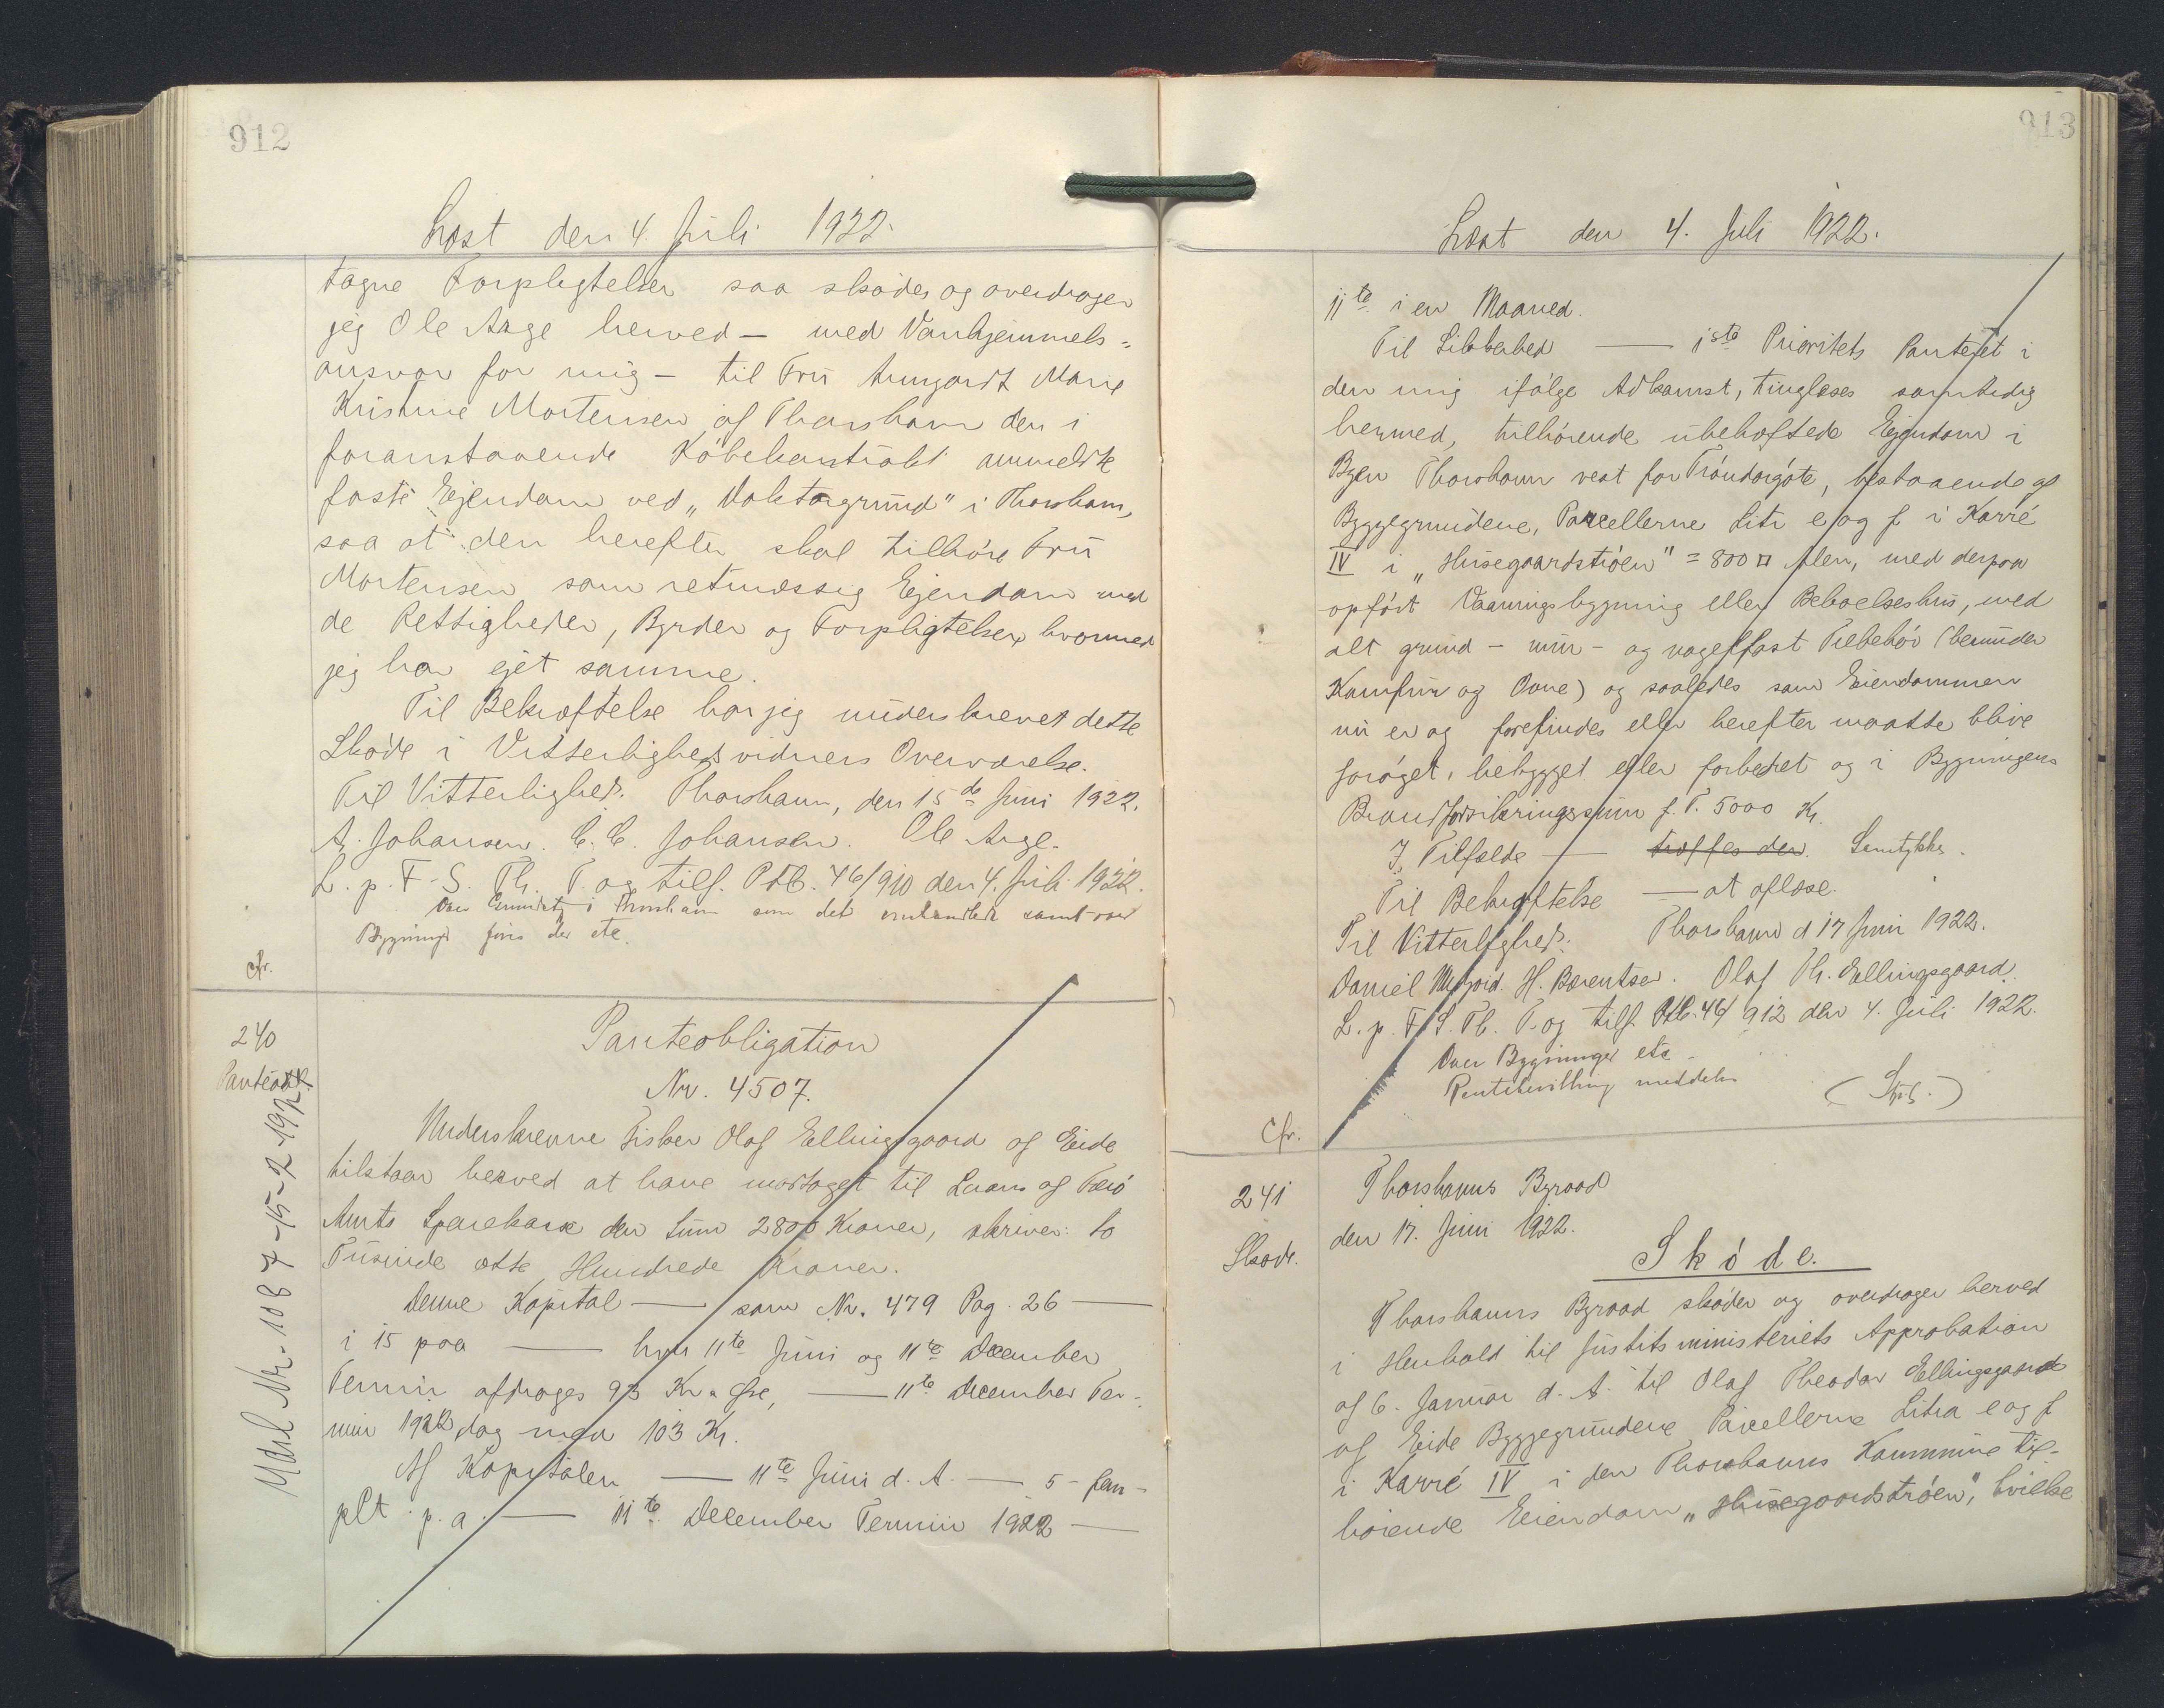 912
Læst den 4. Juli 1922.
tagne Forpligtelser saa skøder og overdrager
jeg Ole Arge herved — med Vanhjemmels-
ansvar for mig — til Fru Armgardt Marie
Kristine Mortensen af Thorshavn den i
foranstaaende Købekontrakt ommeldte
faste Ejendom ved „Doktorgrund" i Thorshavn,
saa at den herefter skal tilhøre Fru
Mortensen som retmæssig Ejendom med
de Rettigheder, Byrder og Forpligtelser, hvormed
jeg har ejet samme.
Til Bekræftelse har jeg underskrevet dette
Skøde i Vitterlighedsvidners Overværelse.
Til Vitterlighed. Thorshavn, den 15de Juni 1922.
A. Johansen. C. C. Johansen. Ole Arge.
L. p. F. S. Th. T. og tilf. Ptb. 46/910 den 4. Juli 1922.
i Thorshavn som det omhandlede samt over
Bygninger der etc.
cfr.
240
Panteobl.
Udsl. Nr. 1087-15-2-1927
Panteobligation
Nr. 4507.
Underskrevne Fisker Olaf Ellingsgaard af Eide
tilstaar herved at have modtaget til Laans af Færø
Amts Sparekasse den Sum 2800 Kroner, skriver: to
Tusinde otte Hundrede Kroner.
Denne Kapital — som Nr. 479 Pag. 26 —
i 15 paa — hver 11te Juni og 11te December
Termin afdrages 93 Kr. Øre, — 11te December Ter-
min 1922 dog med 103 Kr.
Af Kapitalen — 11te Juni d. A. — 5 — fem —
pCt. p. a. — 11te December Termin 1922 —
913
Læst den 4. Juli 1922.
11te i en Maaned.
Til Sikkerhed — 1ste Prioritets Panteret i
den mig ifølge Adkomst, tinglæses samtidig
hermed, tilhørende ubehæftede Ejendom i
Byen Thorshavn vest for Tróndargøta, bestaaende af
Byggegrundene, Parcellerne Litr e og f i Karré
IV i „Husegaardstrøen" = 800 □ Alen, med derpaa
opført Vaaningsbygning eller Beboelseshus, med
alt grund- mur- og nagelfast Tilbehør (herunder
Komfur og Ovne) og saaledes som Eiendommen
nu er og forefindes eller herefter maatte blive
forøget, bebygget eller forbedret og i Bygningens
Brandforsikringssum f. T. 5000 Kr.
I Tilfælde — træffes der. Samtykke.
Til Bekræftelse — at aflæse.
Til Vitterlighed: Thorshavn d 17 Juni 1922.
Daniel H. Berentsen. Olaf Th. Ellingsgaard.
L. p. F. S. Th. T. og tilf. Ptb. 46/912 den 4. Juli 1922.
Over Bygninger etc.
Pantebevilling meddeles
cfr.
241
Skøde.
Thorshavns Byraad
den 17. Juni 1922.
Skøde.
Thorshavns Byraad skøder og overdrager herved
i Henhold til Justitsministeriets Approbation
af 6. Januar d. A. til Olaf Theodor Ellingsgaard
af Eide Byggegrundene Parcellerne Litra e og f
i Karré IV i den Thorshavns Kommune til-
hørende Eiendom „Husegaardstrøen", hvilke